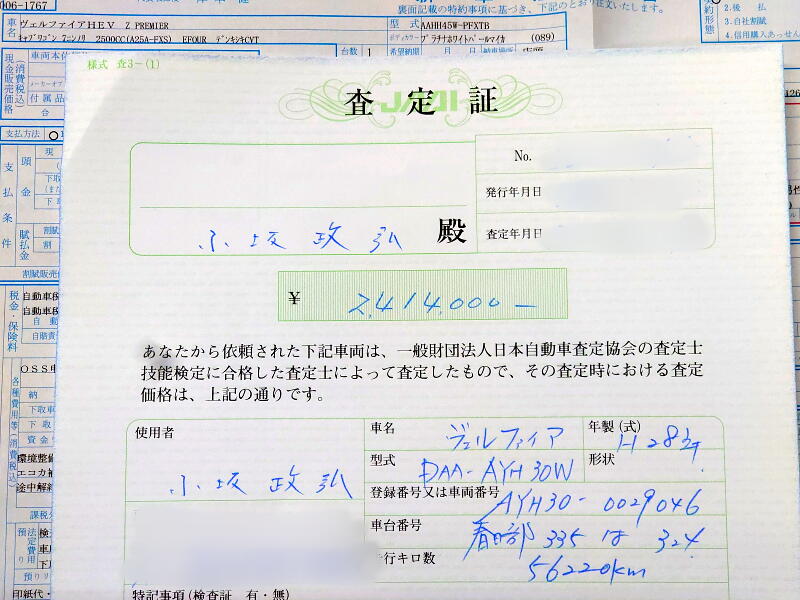 006-1767
裏面記載の特約事項に基づき、下記のとおり注文いたします。
車名 ヴェルファイアHEV Z PREMIER
型式 AAHH45W-PFXTB
キャブワゴン 7ニンノリ 2500CC(A25A-FXS) EFOUR デンキシキCVT
ボディカラー プラチナホワイトパールマイカ (089)
台数 1
希望納期
納車場所 店頭
2. 後払
3. 自社割賦
4. 信用購入あっせん
現金販売価格
(消費税込)
付属品
支払方法
支払条件
頭金
賦払金
割賦販売価
税金・保険料
自動車税
自動車税
自賠責
様式 査3-(1)
JAAI
査定証
No.
発行年月日
査定年月日
小坂 政弘 殿
¥ 2,414,000-
あなたから依頼された下記車両は、一般財団法人日本自動車査定協会の査定士
技能検定に合格した査定士によって査定したもので、その査定時における査定
価格は、上記の通りです。
使用者
小坂 政弘
車名 ヴェルファイア
年製(式) H28年
型式 DAA-AYH30W
形状
登録番号又は車両番号 AYH30-0029046
車台番号 春日部 335 は 324
行キロ数 56220km
特記事項(検査証 有・無)
各種費用等(消費税込)
OSS申
納
下取車
下取
資金
環境整備
エコカ補
途中解約
課税
預り
法定費用
検
車庫
下
預り
印紙代